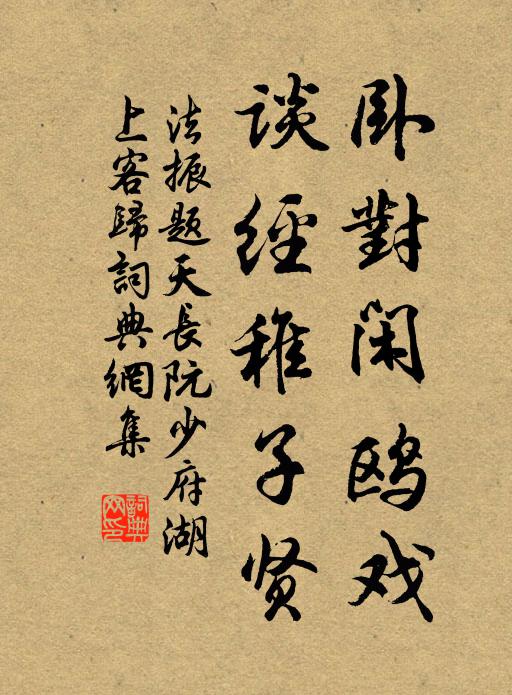 卧對闲鸥戏
谈經稚子贤
法振题天長阮少府湖
上客歸詞典網集
詞典
网印